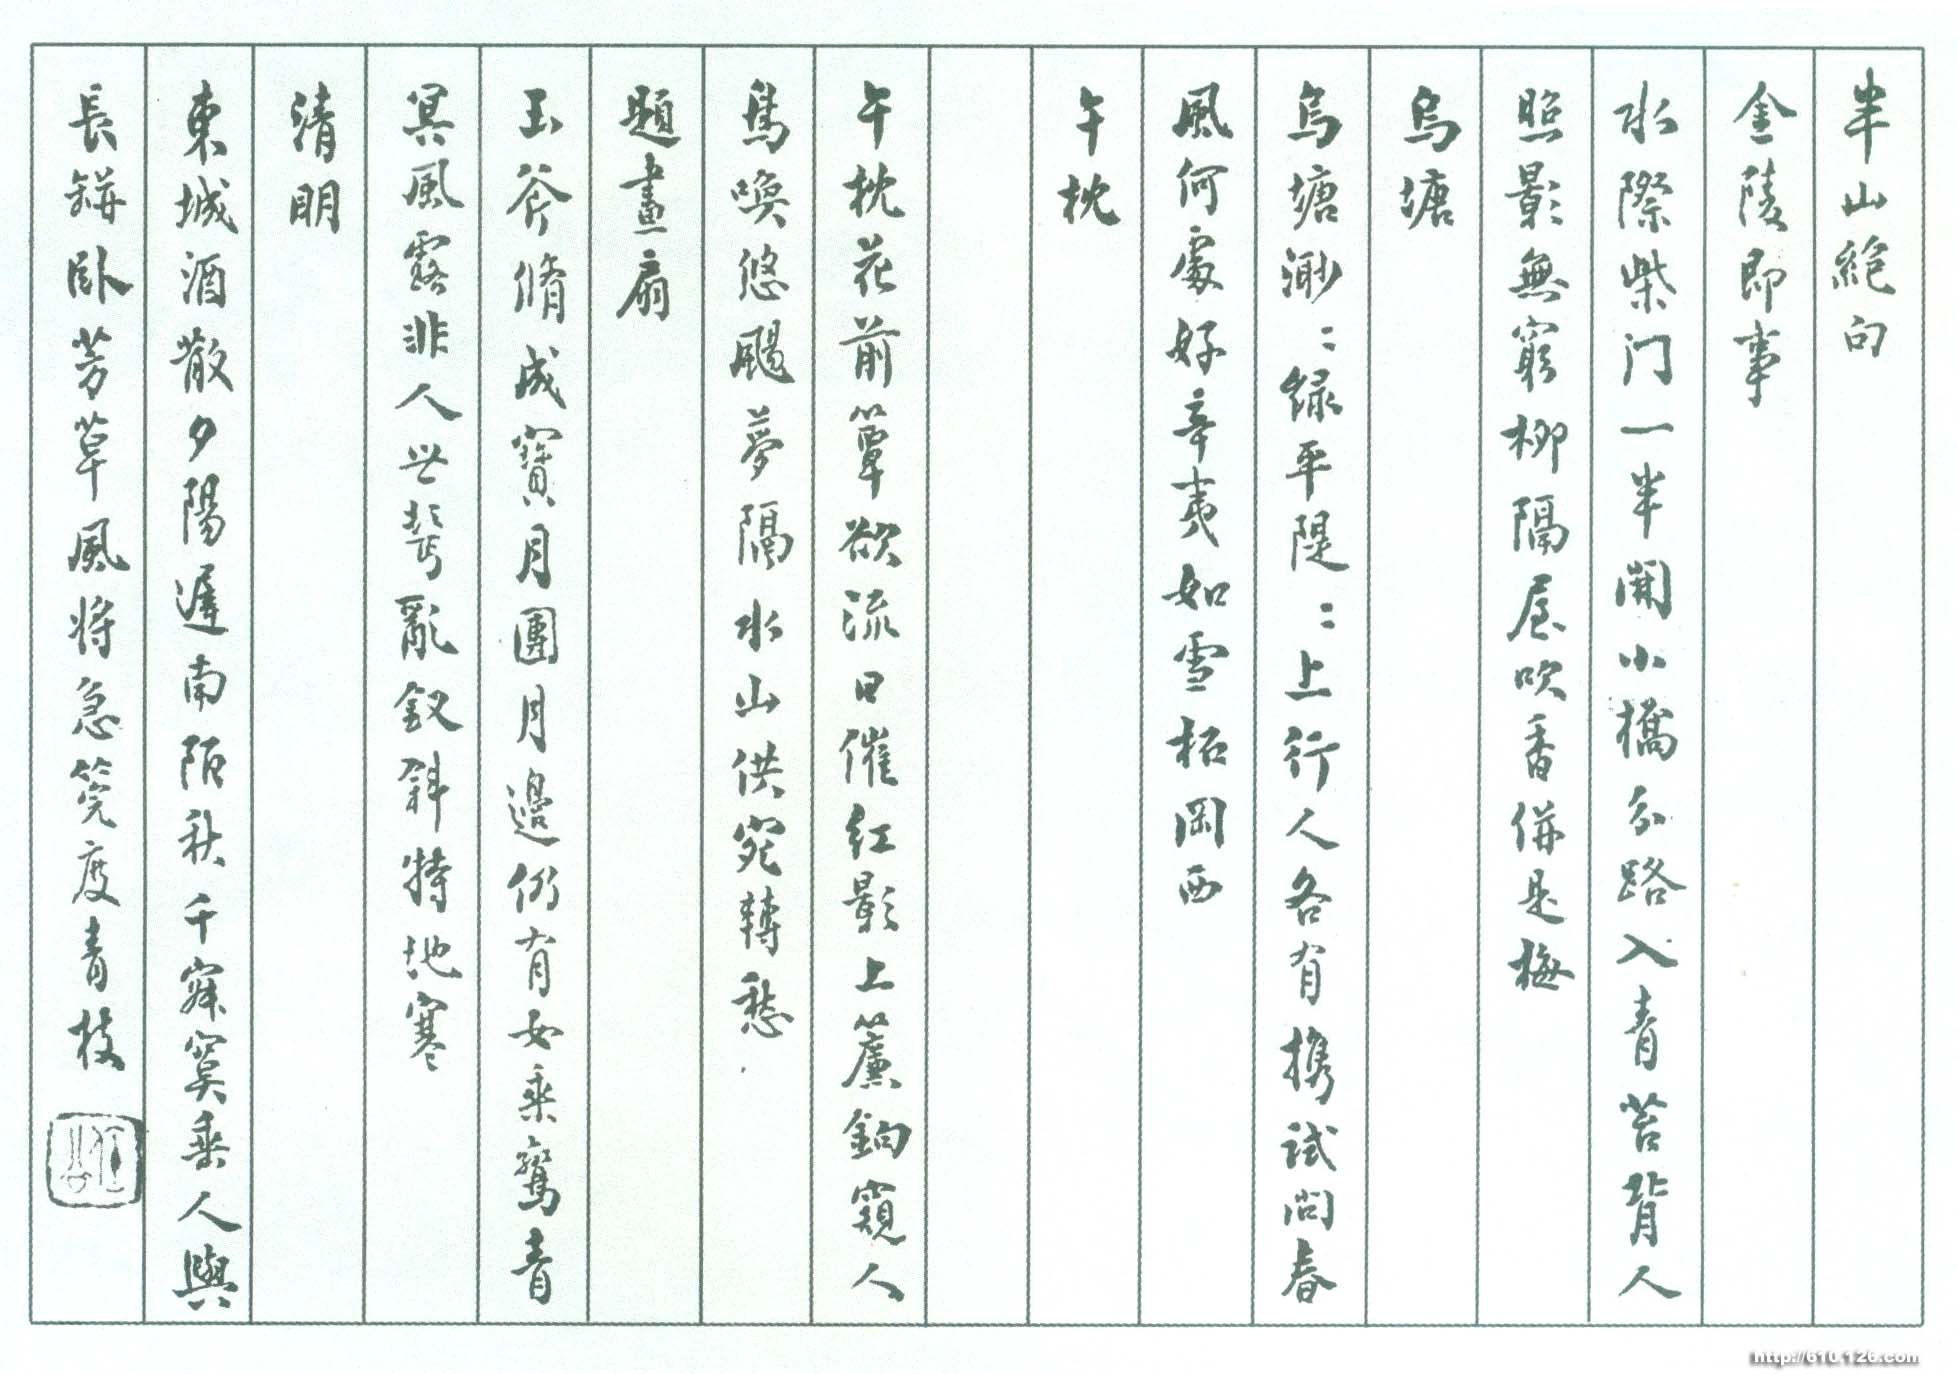 半山絕句
金陵即事
水際柴门一半開小橋分路入青苔背人
照影無窮柳隔屋吹香併是梅
烏塘
烏塘渺〻綠平隄〻上行人各有攜試問春
風何處好辛夷如雪柘岡西
午枕
午枕花前簟欲流日催紅影上簾鉤窺人
鳥喚悠颺夢隔水山供宛轉愁
題畫扇
玉斧脩成寶月團月邊仍有女乘鸞青
冥風露非人世鬢亂釵斜特地寒
清明
東城酒散夕陽遲南陌秋千寂寞垂人與
長缾臥芳草風将急筦度青枝
http://610.126.com